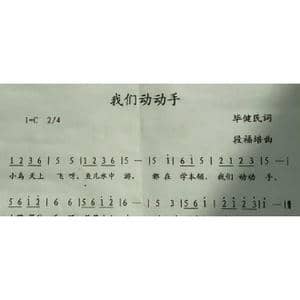 我们动动手
1=C 2/4
毕健民词
段福培曲
1 2 3 6 | 5 5 | 1 2 3 6 | 5 — | 5 i | 6 i 5 | 1 2 3 6 | 5 — |
小鸟天上 飞呀,鱼儿水中 游, 都在学本领, 我们动动 手,
5 6 i 2 | 6 i | 5 6 i 2 | 6 — | 5 3 | 5 5 3 | 5 6 i 2 | i — :||